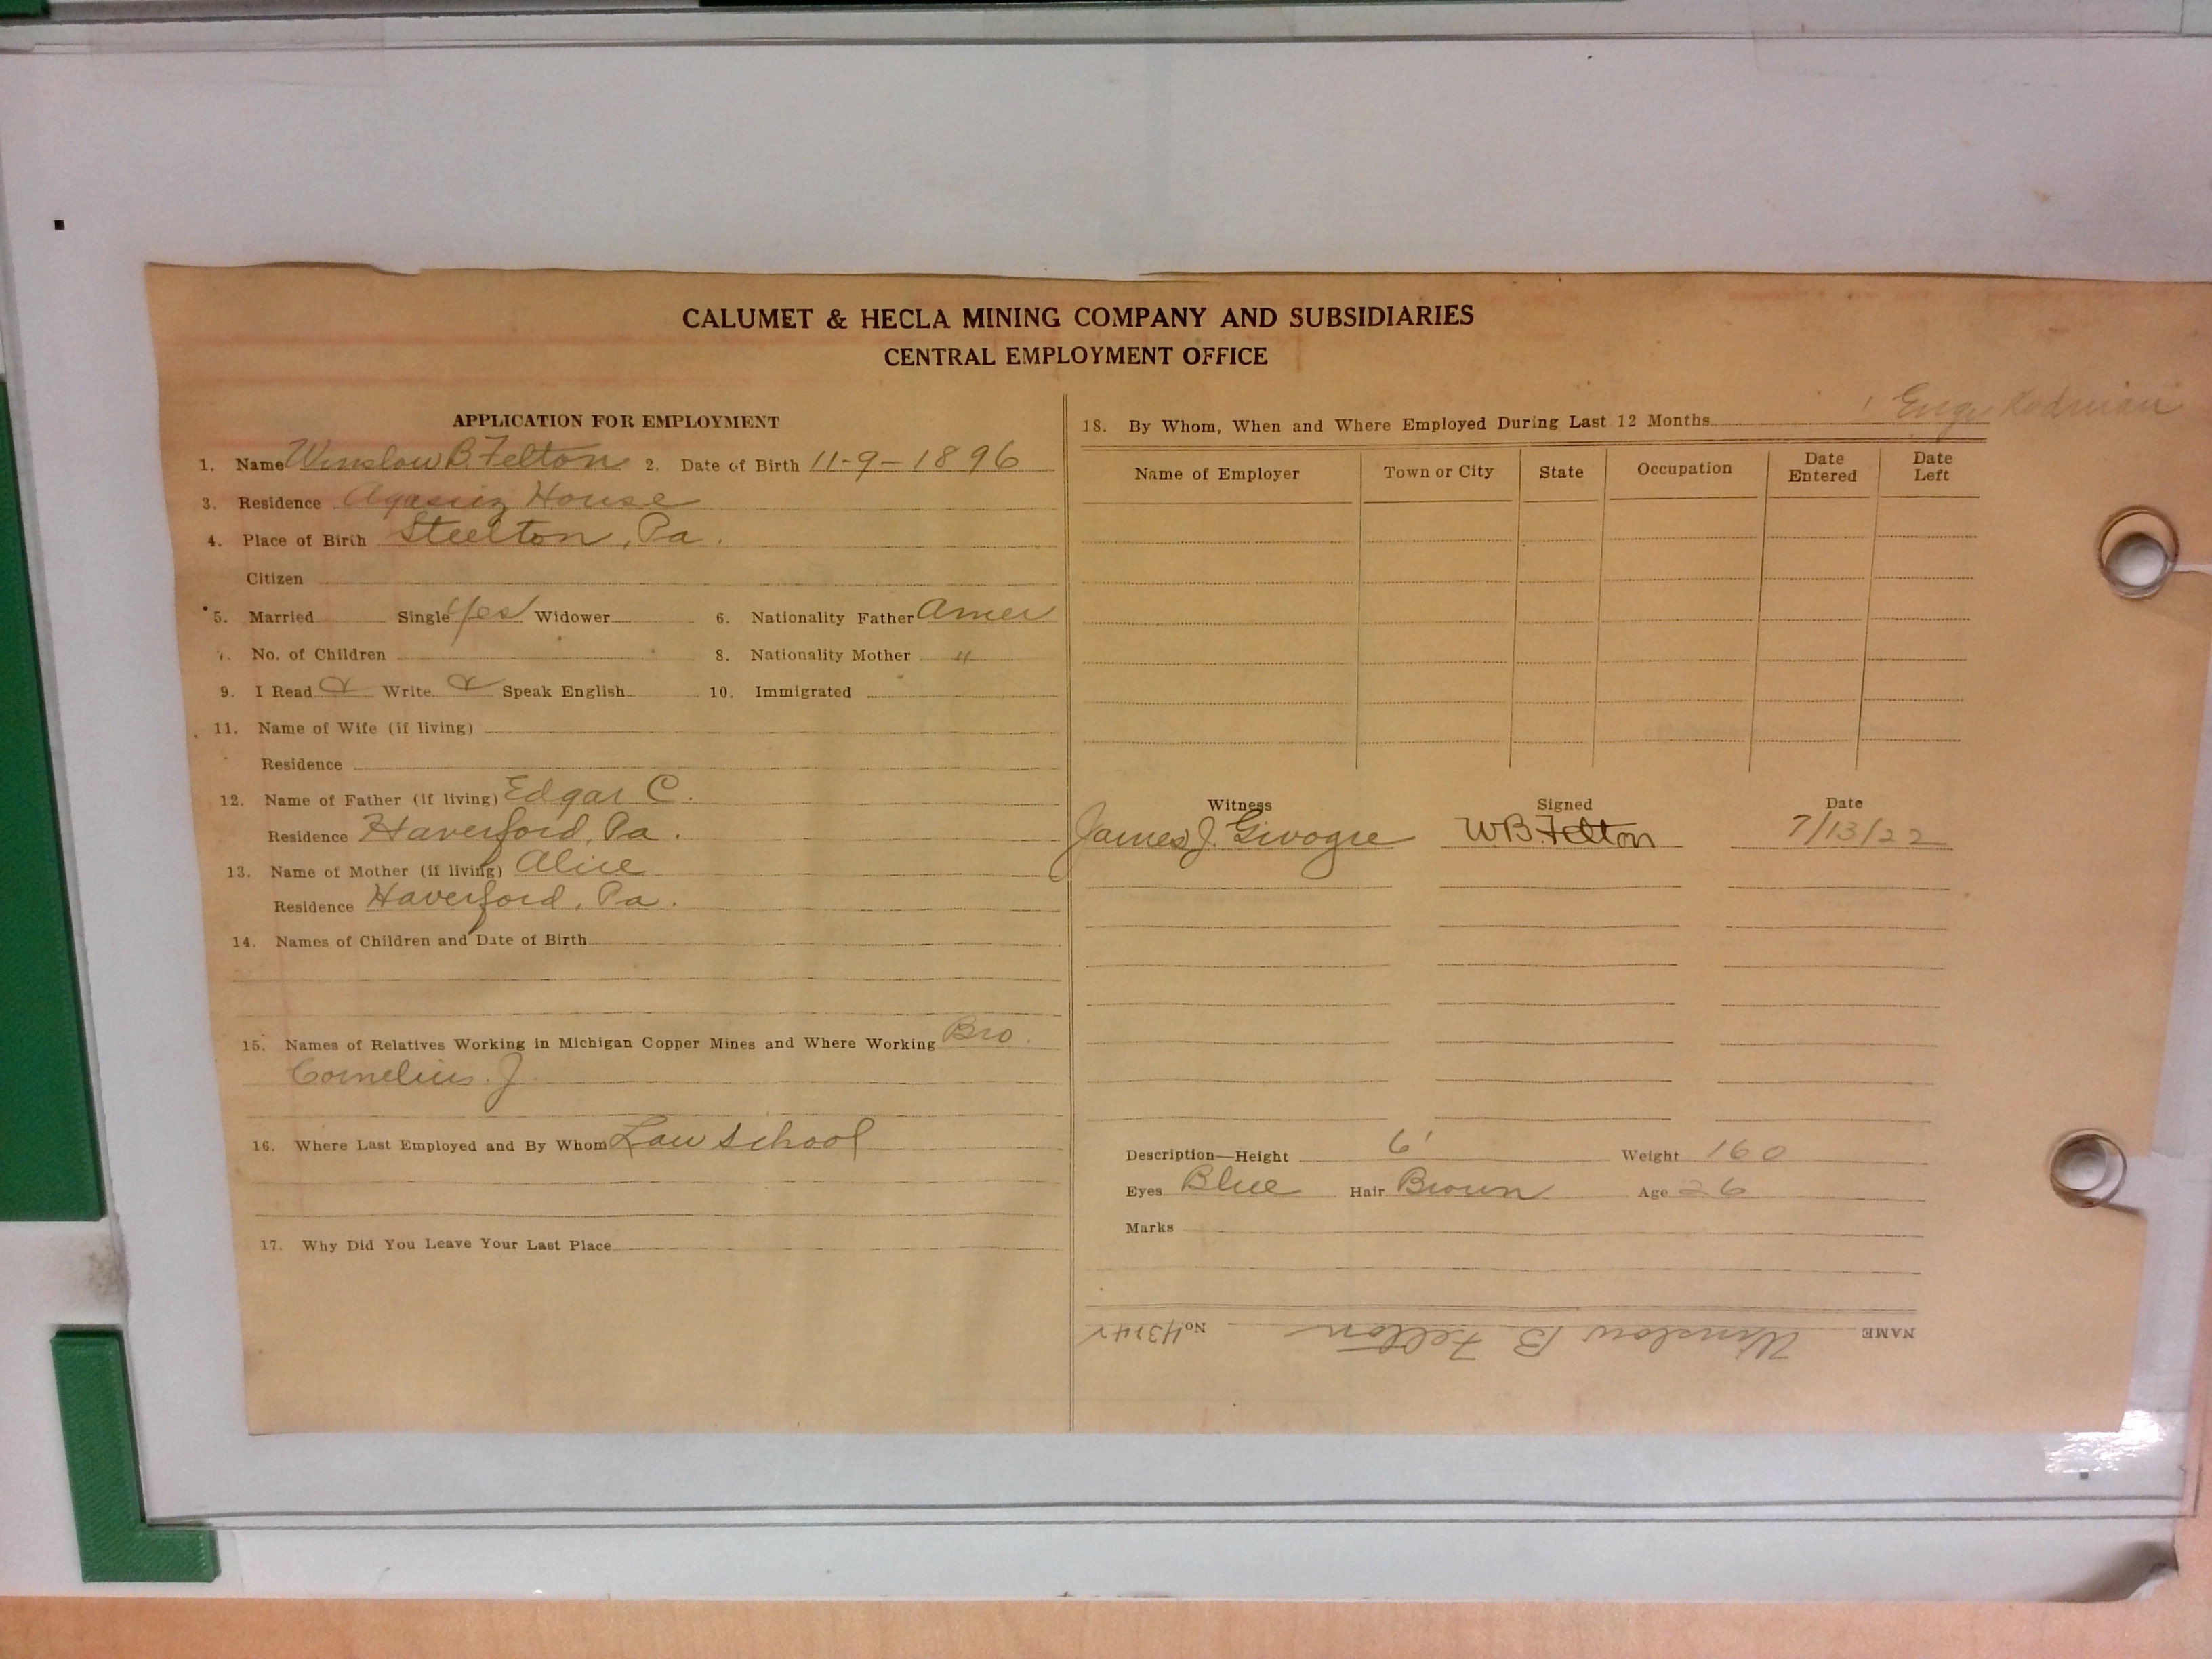 CALUMET & HECLA MINING COMPANY AND SUBSIDIARIES
CENTRAL EMPLOYMENT OFFICE
APPLICATION FOR EMPLOYMENT
1. Name Winslow B. Felton 2. Date of Birth 11-9-1896
3. Residence Agassiz House
4. Place of Birth Steelton, Pa.
Citizen
5. Married Single Yes Widower 6. Nationality Father Amer
7. No. of Children 8. Nationality Mother "
9. I Read Write Speak English 10. Immigrated
11. Name of Wife (if living)
Residence
12. Name of Father (if living) Edgar C.
Residence Haverford, Pa.
13. Name of Mother (if living) Alice
Residence Haverford, Pa.
14. Names of Children and Date of Birth
15. Names of Relatives Working in Michigan Copper Mines and Where Working Bro.
Cornelius. J
16. Where Last Employed and By Whom Law School
17. Why Did You Leave Your Last Place
Engr Rodman
18. By Whom, When and Where Employed During Last 12 Months
Name of Employer Town or City State Occupation Date Entered Date Left
Witness Signed Date
James J. W.B. Felton 7/13/22
Description—Height 6' Weight 160
Eyes Blue Hair Brown Age 26
Marks
NAME Winslow B Felton No.